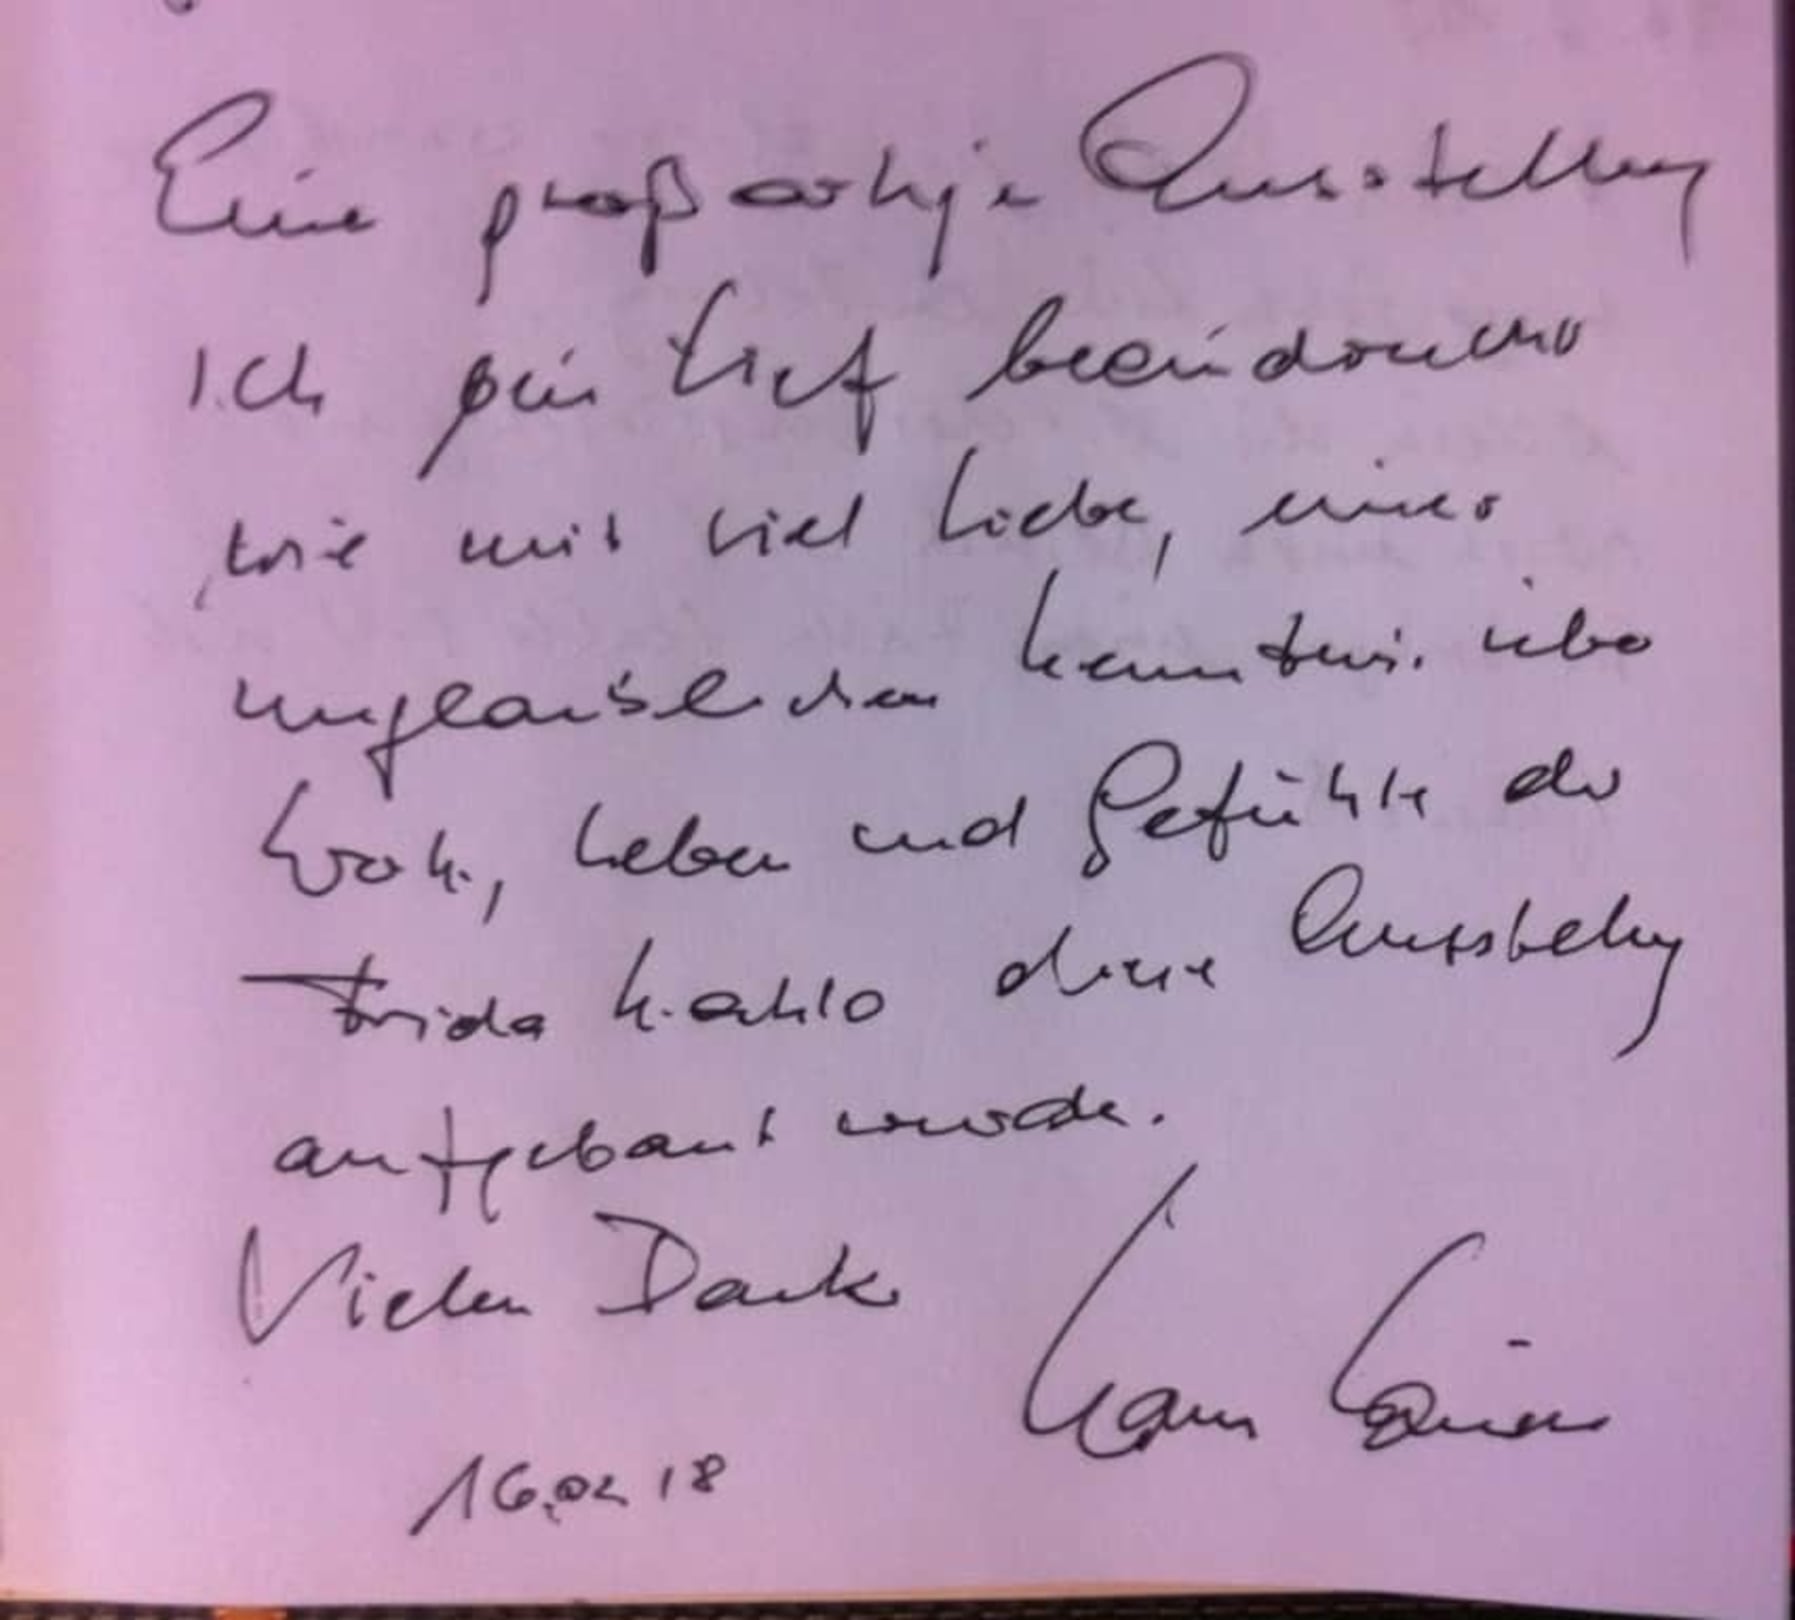 Eine großartige Ausstellung
Ich bin tief beeindruckt
wie mit viel Liebe, einer
unglaublichen Kenntnis über
Werk, Leben und Gefühle der
Frida Kahlo diese Ausstellung
aufgebaut wurde.
Vielen Dank
16.02 18